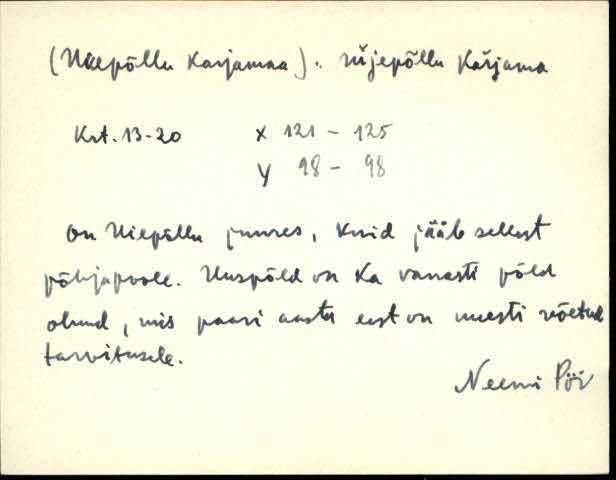 (Uiepõllu Karjamaa). ńijepõllu Kaŕjama
Krt. 13-20 X 121 - 125
Y 98 - 98
on Uiepõllu juures, kuid jääb sellest
põhjapoole. Uuspõld on ka vanasti põld
olnud, mis paari aasta eest on uuesti võetud
tarvitusele.
Neemi Pöi